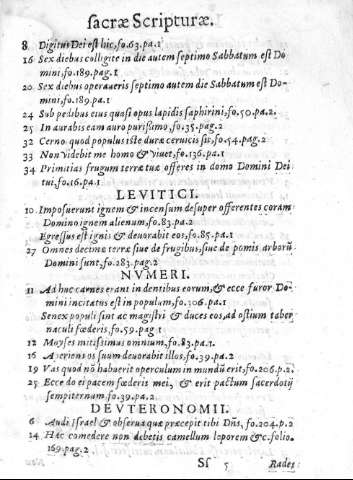 sacræ Scripturæ.
8 Digitus Dei est hic, fo.63.pa.1
16 Sex diebus colligite in die autem septimo Sabbatum est Do
mini, fo.189.pag.1
20 Sex diebus operaueris septimo autem die Sabbatum est Do-
mini, fo.189.pa.1
24 Sub pedibus eius quasi opus lapidis saphirini, fo.50.pa.2.
25 In aurabis eam auro purissimo, fo.35.pag.2
32 Cerno quod populus iste duræ ceruicis sit, fo.54.pag.2
33 Non videbit me homo & viuet, fo.136.pa.1
34 Primitias frugum terræ tuæ offeres in domo Domini Dei
tui, fo.16.pa.1
LEVITICI.
10 Imposuerunt ignem & incensum desuper offerentes coram
Domino ignem alienum, fo.83.pa.2
Egressus est ignis & deuorabit eos, fo.85.pa.1
27 Omnes decimæ terræ siue de frugibus, siue de pomis arborū
Domini sunt, fo.283.pag.2
NVMERI.
11 Ad huc carnes erant in dentibus eorum, & ecce furor Do-
mini incitatus est in populum, fo.106.pa.1
Senex populi sint ac magistri & duces eos, ad ostium taber
naculi fœderis, fo.59.pag.1
12 Moyses mitissimus omnium, fo.83.pa.1.
16 Aperiens os suum deuorabit illos, fo.39.pa.2
19 Vas quod nō habuerit operculum in mundū erit, fo.206.p.2.
25 Ecce do ei pacem fœderis mei, & erit pactum sacerdotij
sempiternum, fo.39.pa.2.
DEVTERONOMII.
6 Audi Israel & obserua quæ præcepit tibi Dñs, fo.204.p.2
14 Hæc comedere non debetis camellum loporem &c. folio.
169.pag.2
Sſ 5 Rades